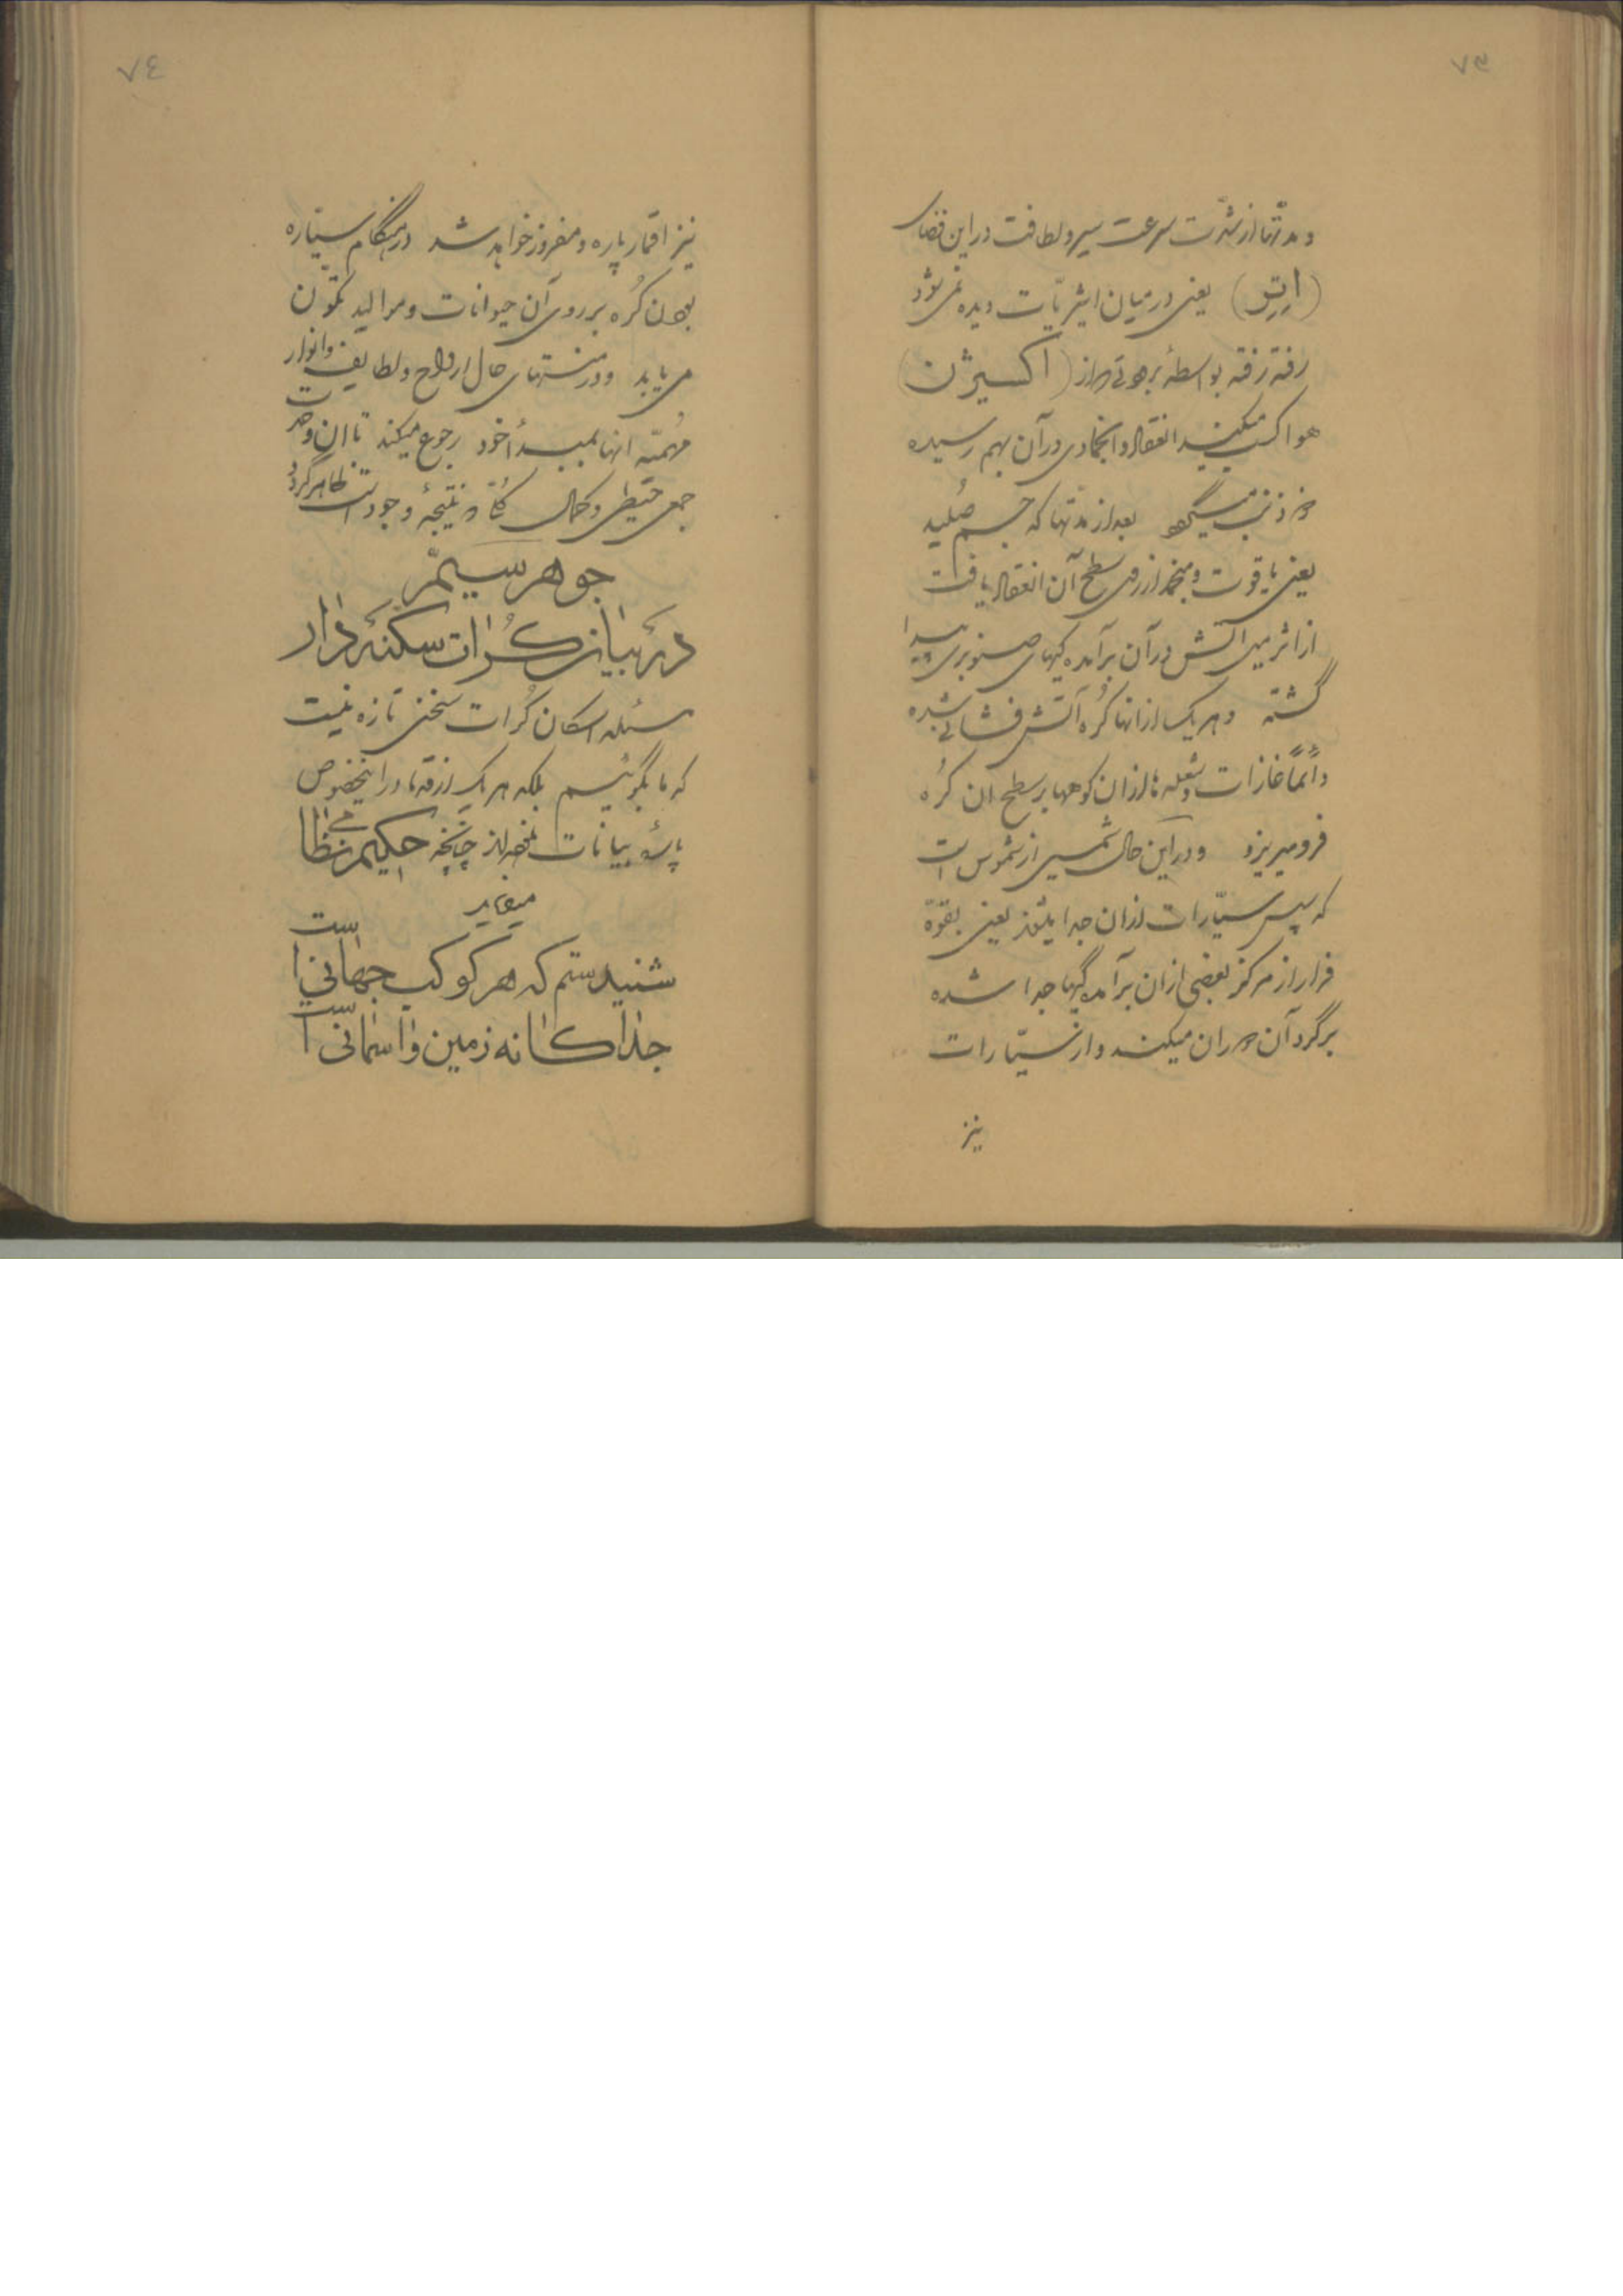 ٧٣
و مدتها از شدّت سرعت سیر و لطافت در این فضای
(اِتِر) یعنی در میان اثیریّات دیده نمی‌شود
رفته رفته بواسطهٔ برودتی که از (اکسیژن)
هوا کسب میکند انعقاد و انجمادی در آن بهم رسیده
بعد از مدتها که جسم صُلبی
یعنی یاقوت و منجمد از روی سطح آن انعقاد یافت
از اثر میل آتش در آن برآمده‌گیهای صنوبری پیدا
گشته و هر یک از انها کُره آتش فشانی شده
دائماً غازات و شعله‌ها از ان کوهها بر سطح آن کُره
فرو میریزد و در این حال شمسی از شموس است
که سپس سیّارات از ان جدا میشوند یعنی بقوّهٔ
فرار از مرکز بعضی از ان برآمده‌گیها جدا شده
برگرد آن دوران میکنند و از سیّارات
نیز
٧٤
نیز اقمار پاره و مفروز خواهد شد در هنگام سیّاره
بودن کُره بر روی آن حیوانات و موالید تکوّن
می‌یابد و در منتهای حال ارواح و لطایف و انوار
مُهمّهٔ انها بمبدأ خود رجوع میکند تا ان وحدت
جمعی و کمال کُلّی که نتیجهٔ وجود است ظاهر گردد
جوهر سیّم
در بیان کرات سکنه دار
مسئله اسکان کُرات سخنی تازه نیست
که ما بگوئیم بلکه هر یک از قدما در اینخصوص
پارهٔ بیانات چنانچه حکیم نظامی
میفرماید
شنیدستم که هر کوکب جهانی است
جداگانه زمین و آسمانی است